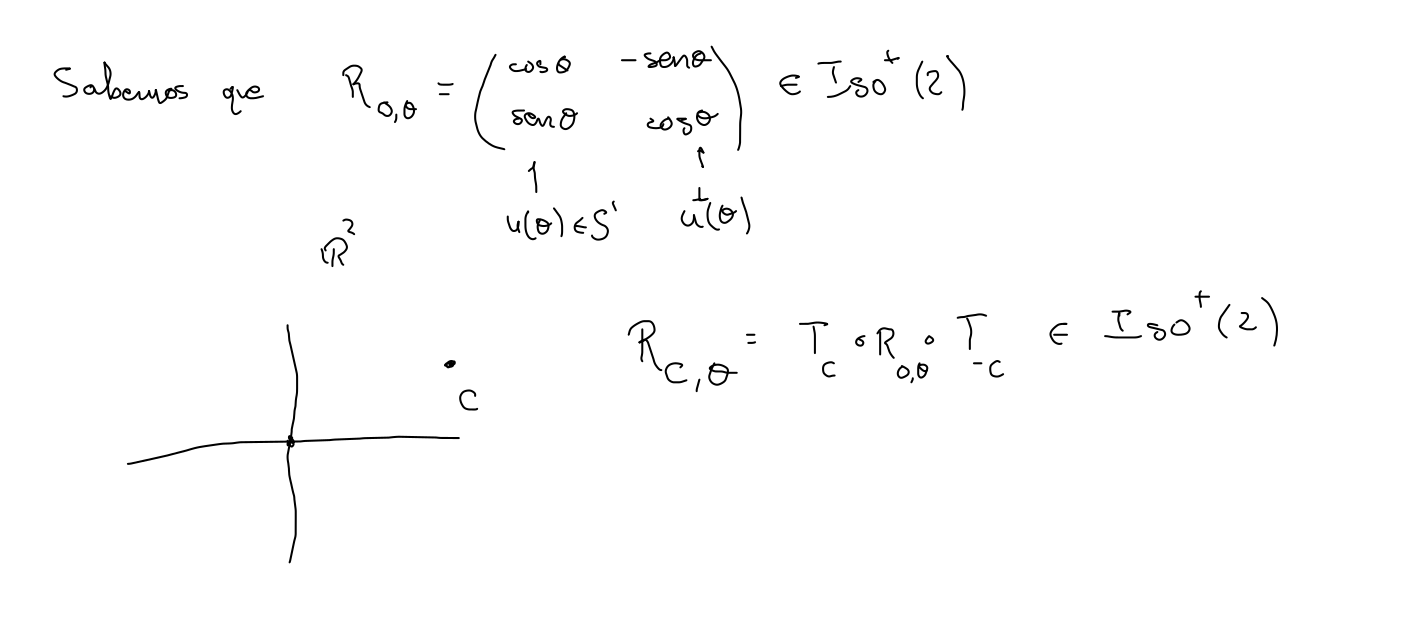 Sabemos que R₀,θ = ( cosθ -senθ ) ∈ Iso⁺(2)
( senθ cosθ )
↑ ↑
u(θ) ∈ S¹ u⊥(θ)
ℝ²
R_C,θ = T_C ∘ R_0,θ ∘ T_-C ∈ Iso⁺(2)
C